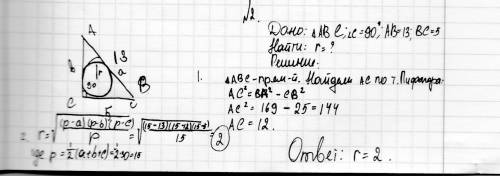 №2.
Дано: △ABC; ∠C=90°; AB=13; BC=5
Найти: r=?
Решение:
1. △ABC-прям-й. Найдём AC по т. Пифагора.
AC²=BA²-CB²
AC²=169-25=144
AC=12.
A
13
b
r
a
90
B
C
5
2. r=√((p-a)(p-b)(p-c)/p)=√((15-13)(15-12)(15-5)/15)=2
где p=½(a+b+c)=½·30=15
Ответ: r=2.